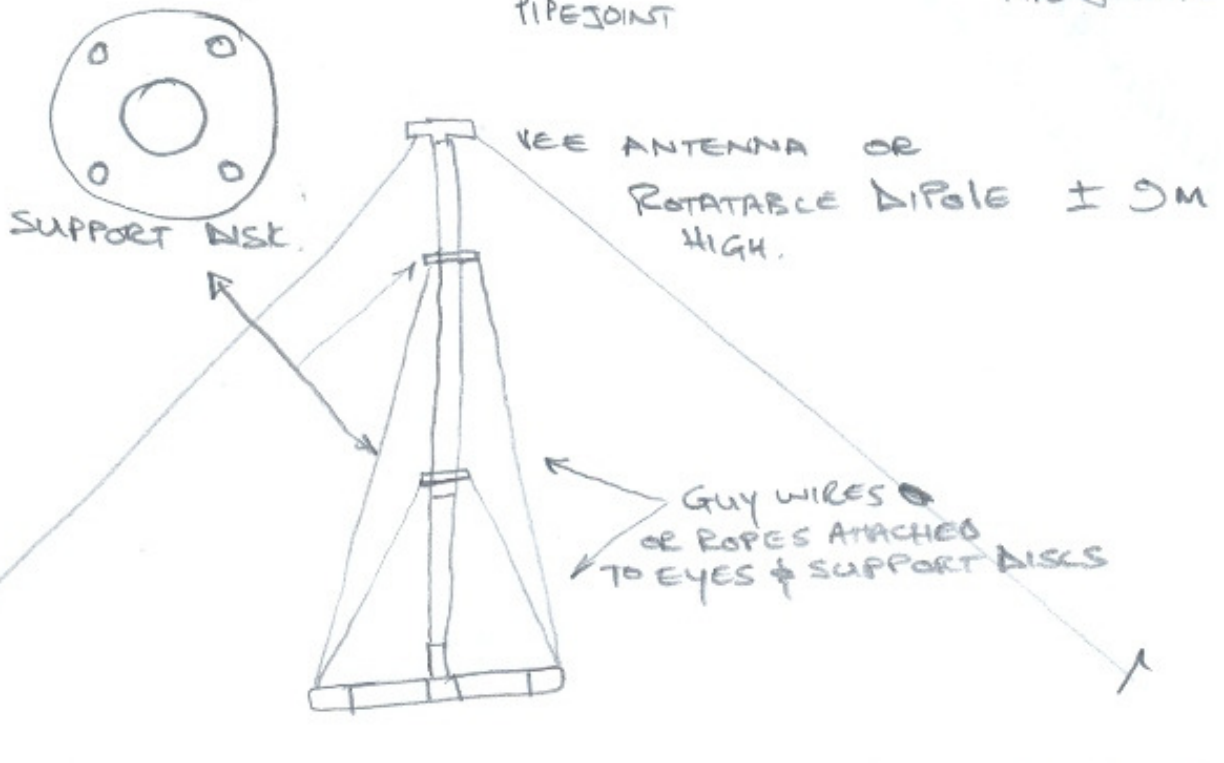 PIPEJOINT
SUPPORT DISK.
VEE ANTENNA OR
ROTATABLE DIPOLE ± 9M
HIGH.
GUY WIRES
OR ROPES ATTACHED
TO EYES & SUPPORT DISCS